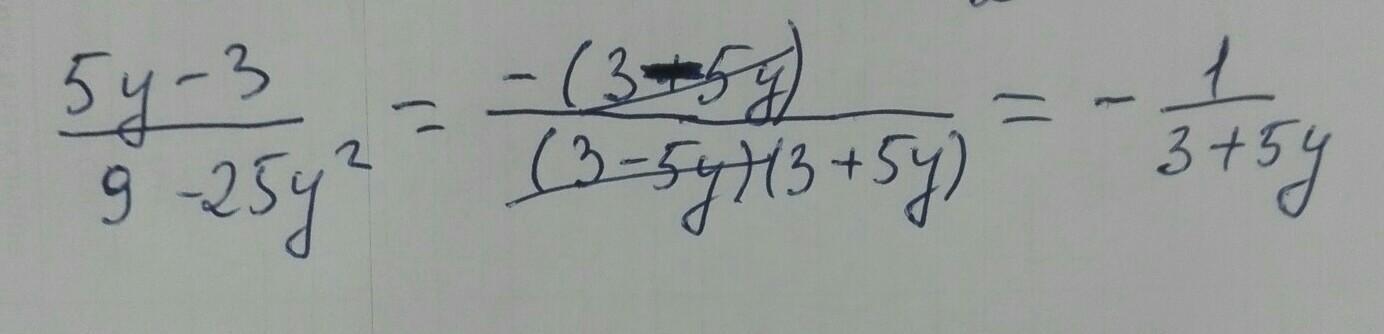 5y-3/9-25y² = -(3-5y)/(3-5y)(3+5y) = -1/3+5y